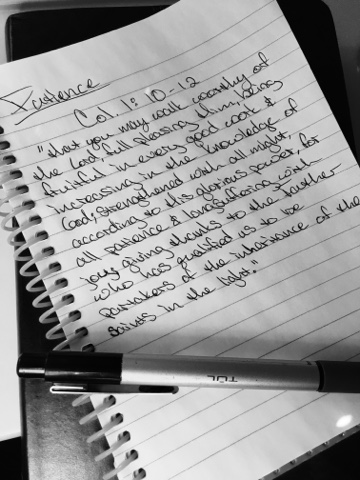 Patience
Col. 1:10-12
"that you may walk worthy of
the Lord, full pleasing Him, being
fruitful in every good work &
increasing in the knowledge of
God; strengthened with all might,
according to this glorious power, for
all patience & longsuffering with
joy; giving thanks to the Father
who has qualified us to be
partakers of the inheritance of the
saints in the light."
TUL